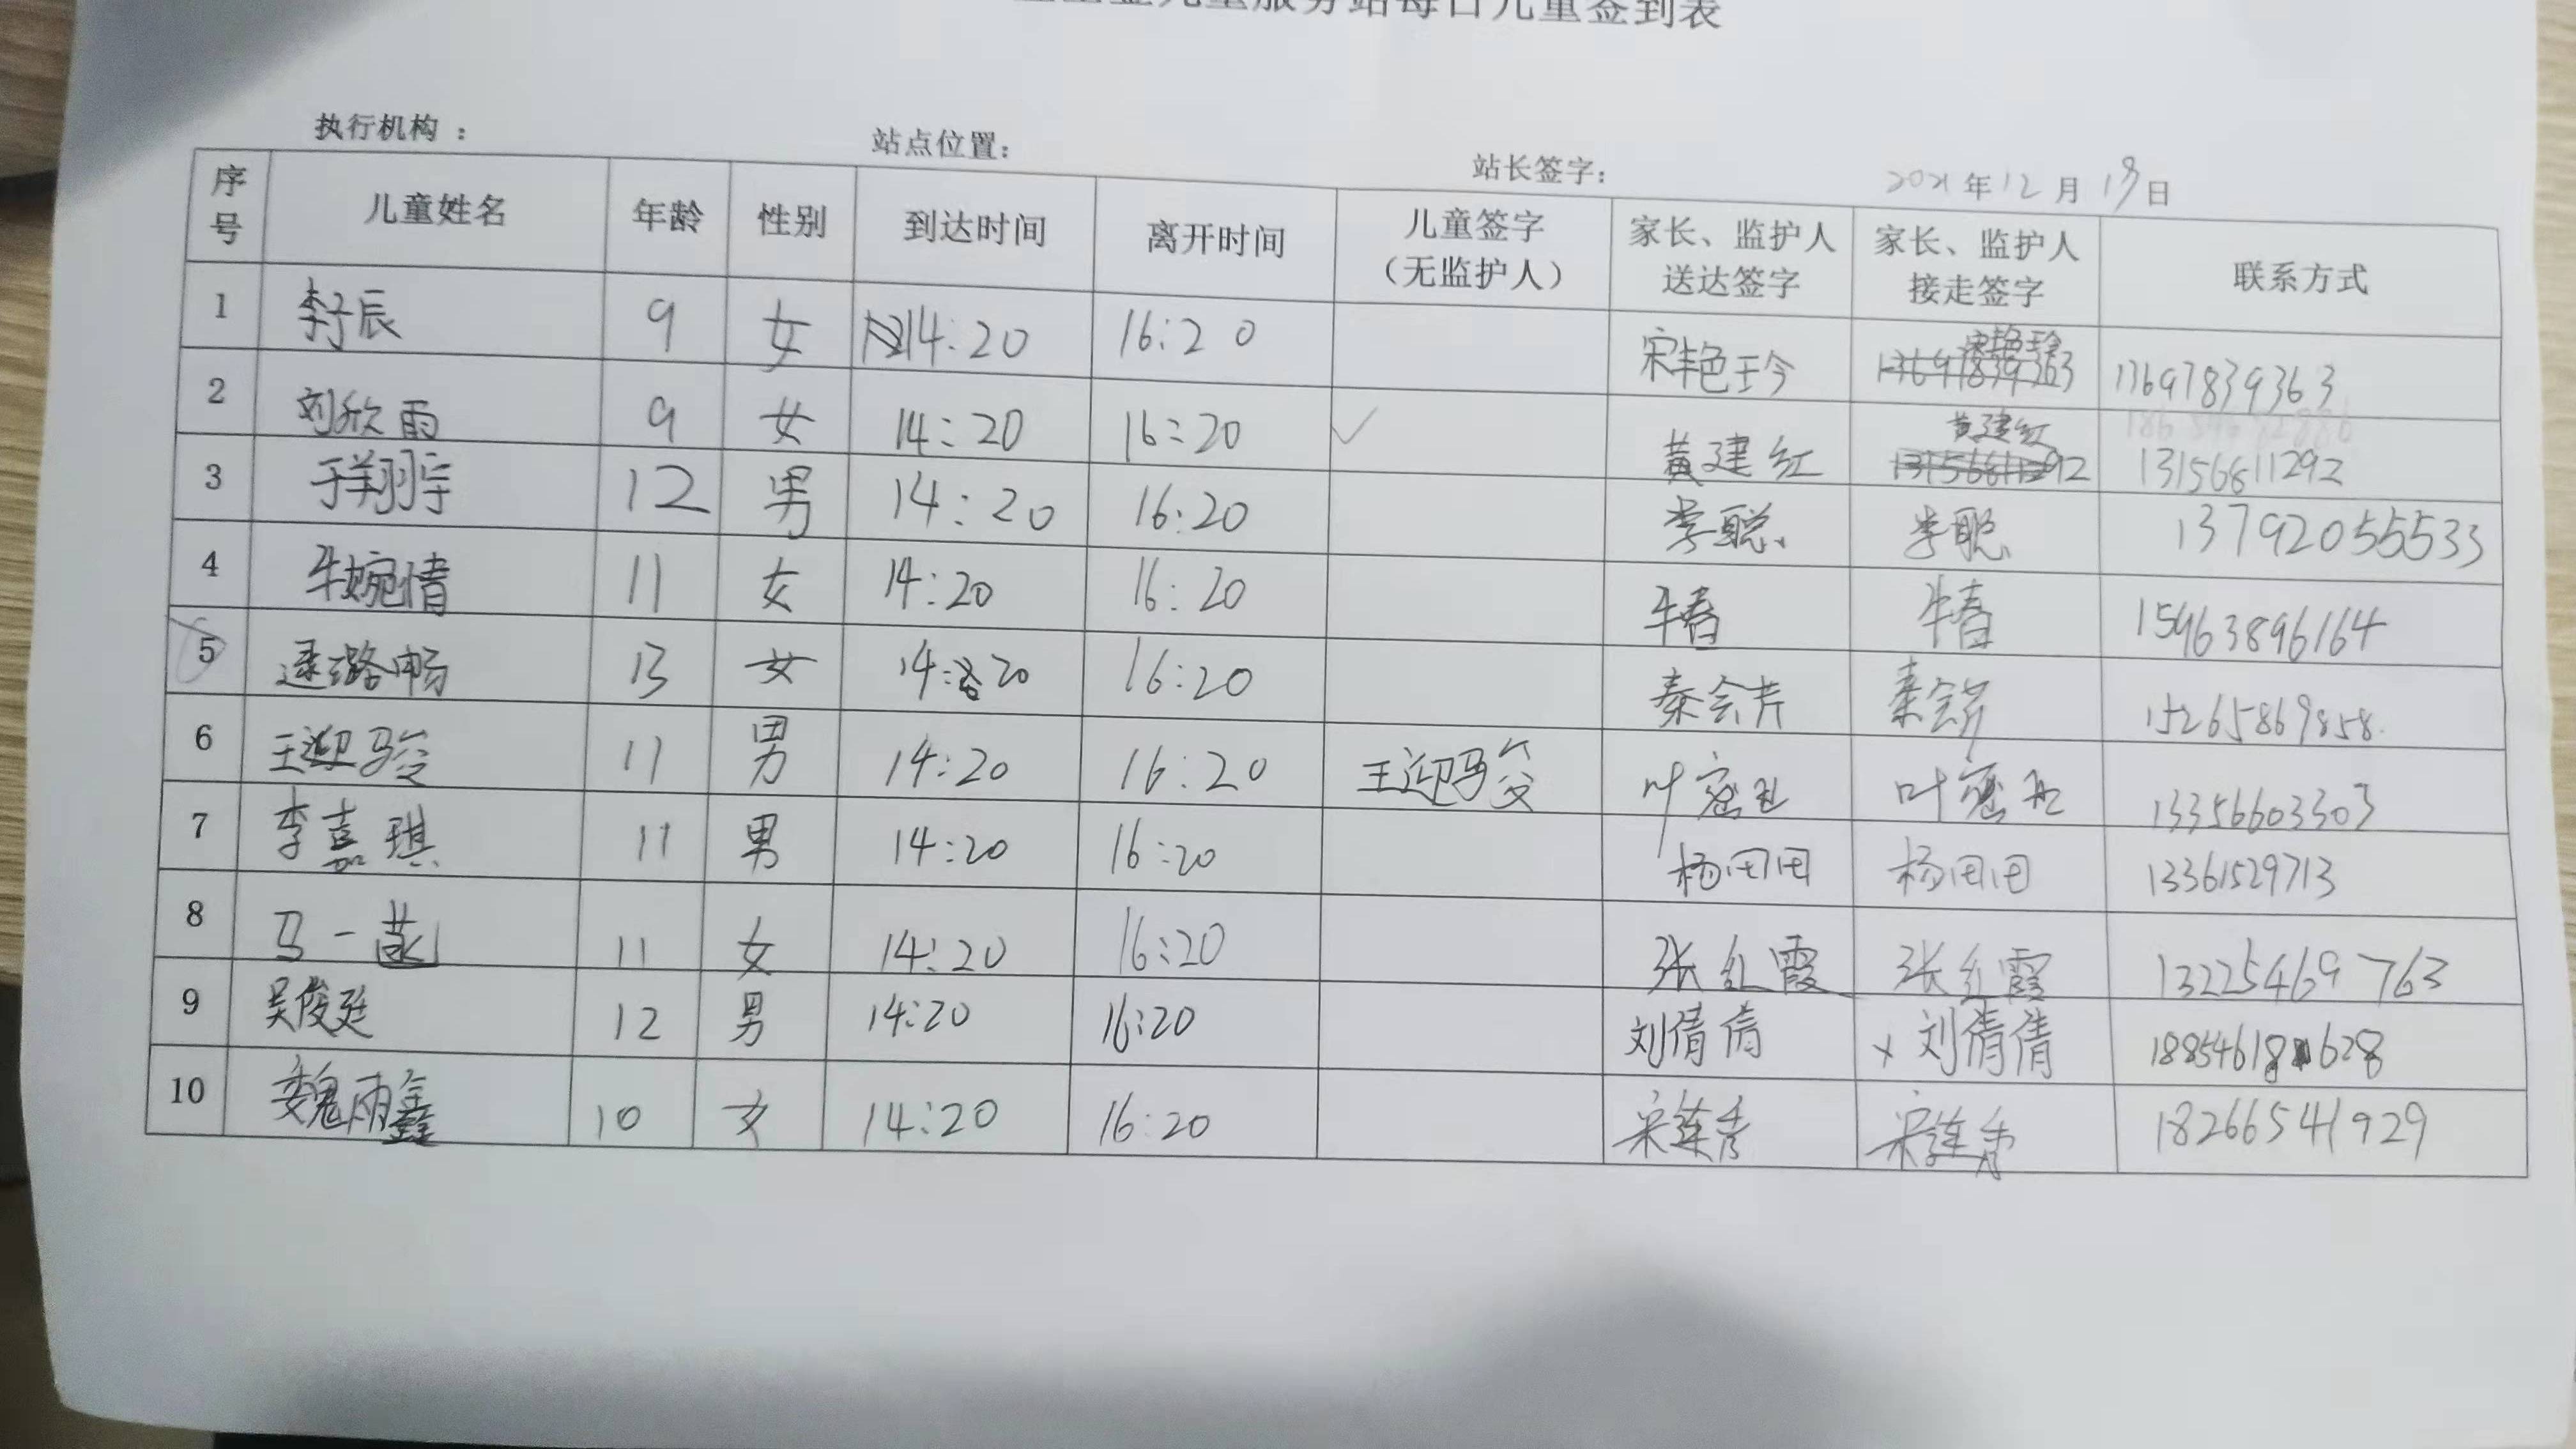 儿童服务站每日儿童签到表
执行机构： 站点位置： 站长签字： 2021年12月19日
序号 儿童姓名 年龄 性别 到达时间 离开时间 儿童签字（无监护人） 家长、监护人送达签字 家长、监护人接走签字 联系方式
1 李子辰 9 女 14:20 16:20 宋艳玲 宋艳玲 13697839363
2 刘欣雨 9 女 14:20 16:20 ✓ 黄建红 黄建红 13156811292
3 于翔宇 12 男 14:20 16:20 李聪 李聪 13792055533
4 牛婉情 11 女 14:20 16:20 牛春 牛春 15963896164
5 逯潞畅 13 女 14:20 16:20 秦会芹 秦会芹 15265869858
6 王迎骏 11 男 14:20 16:20 王迎骏 叶 叶 13356603303
7 李嘉琪 11 男 14:20 16:20 杨田田 杨田田 13361529713
8 马一 11 女 14:20 16:20 张红霞 张红霞 13225469763
9 吴俊廷 12 男 14:20 16:20 刘倩倩 x 刘倩倩 18854618628
10 魏雨鑫 10 女 14:20 16:20 宋莲秀 宋莲秀 18266541929